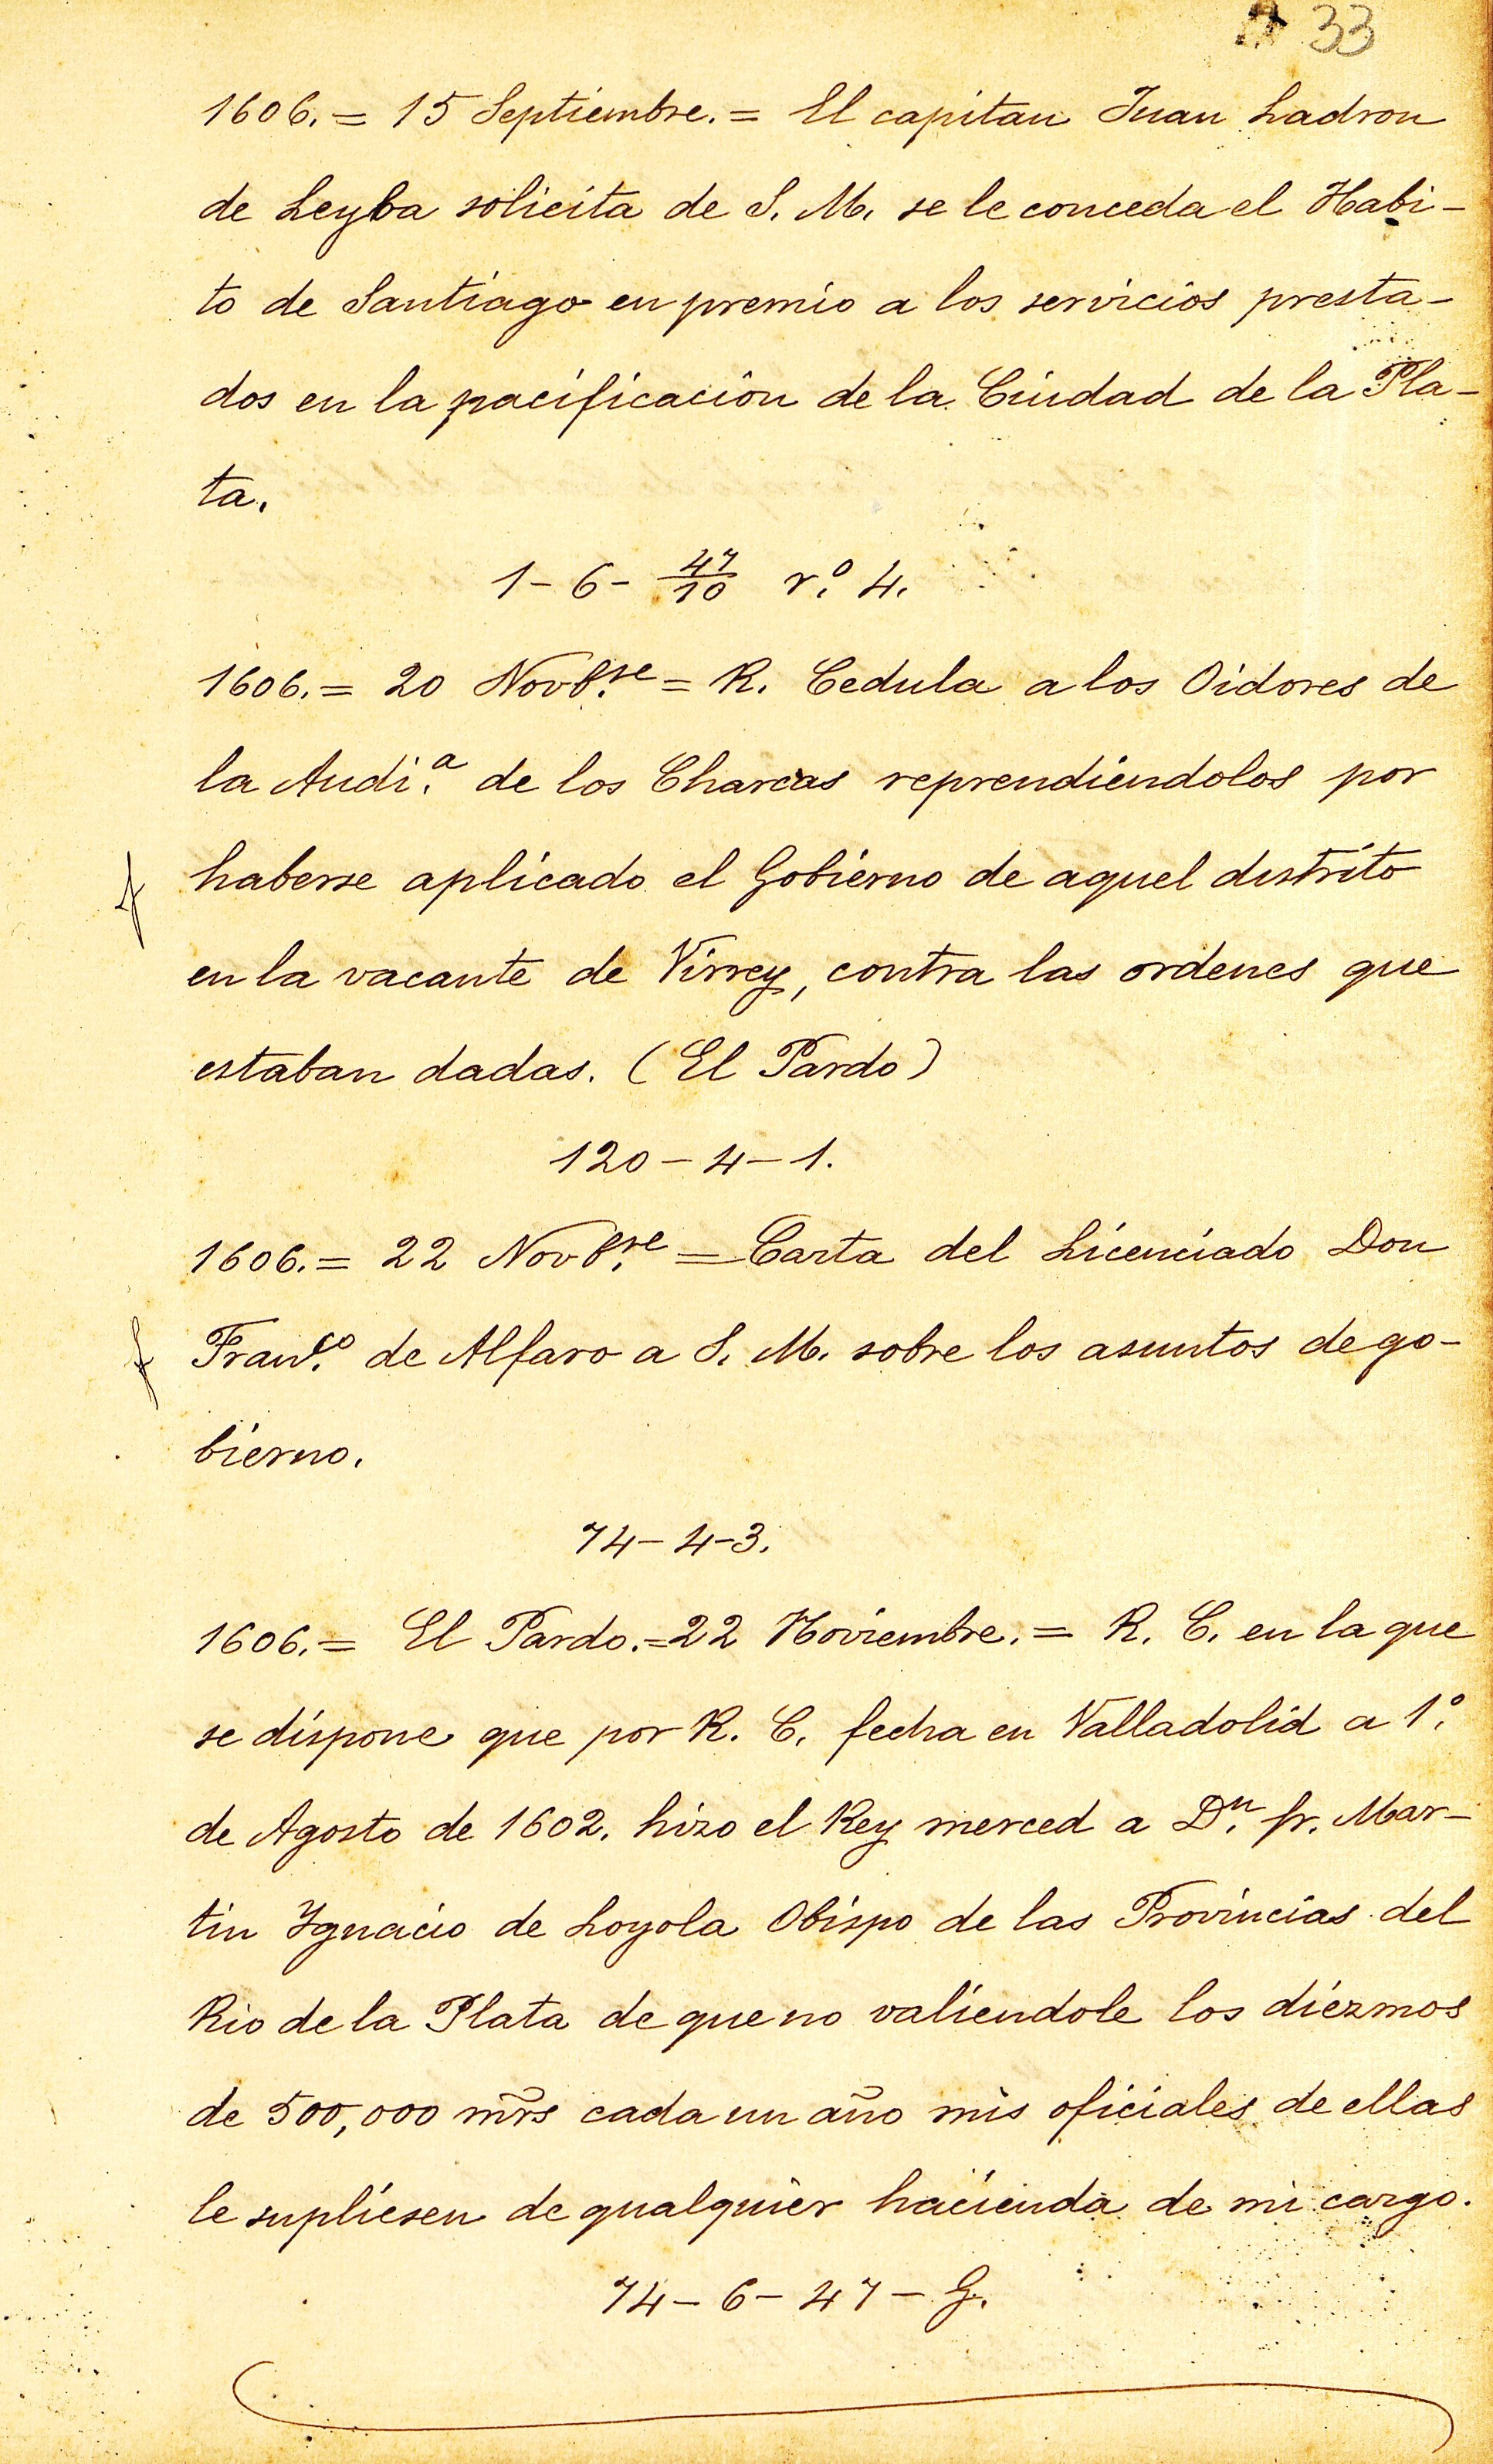 33
1606. = 15 Septiembre. = El capitan Juan Ladron
de Leyba solicita de S. M. se le conceda el Habi-
to de Santiago en premio a los servicios presta-
dos en la pacificación de la Ciudad de la Pla-
ta.
1 - 6 - 47/10 r.º 4.
1606. = 20 Novb.re = R. Cedula a los Oidores de
la Audi.a de los Charcas reprendiéndolos por
haberse aplicado el Gobierno de aquel distrito
en la vacante de Virrey, contra las ordenes que
estaban dadas. (El Pardo)
120 - 4 - 1.
1606. = 22 Novb.re = Carta del Licenciado Don
Fran.co de Alfaro a S. M. sobre los asuntos de go-
bierno.
74 - 4 - 3.
1606. = El Pardo. = 22 Noviembre. = R. C. en la que
se dispone que por R. C. fecha en Valladolid a 1.º
de Agosto de 1602. hizo el Rey merced a D.n fr. Mar-
tin Ygnacio de Loyola Obispo de las Provincias del
Rio de la Plata de que no valiendole los diezmos
de 500,000 mr̃s cada un año mis oficiales de ellas
le supliesen de qualquier hacienda de mi cargo.
74 - 6 - 47 - G.